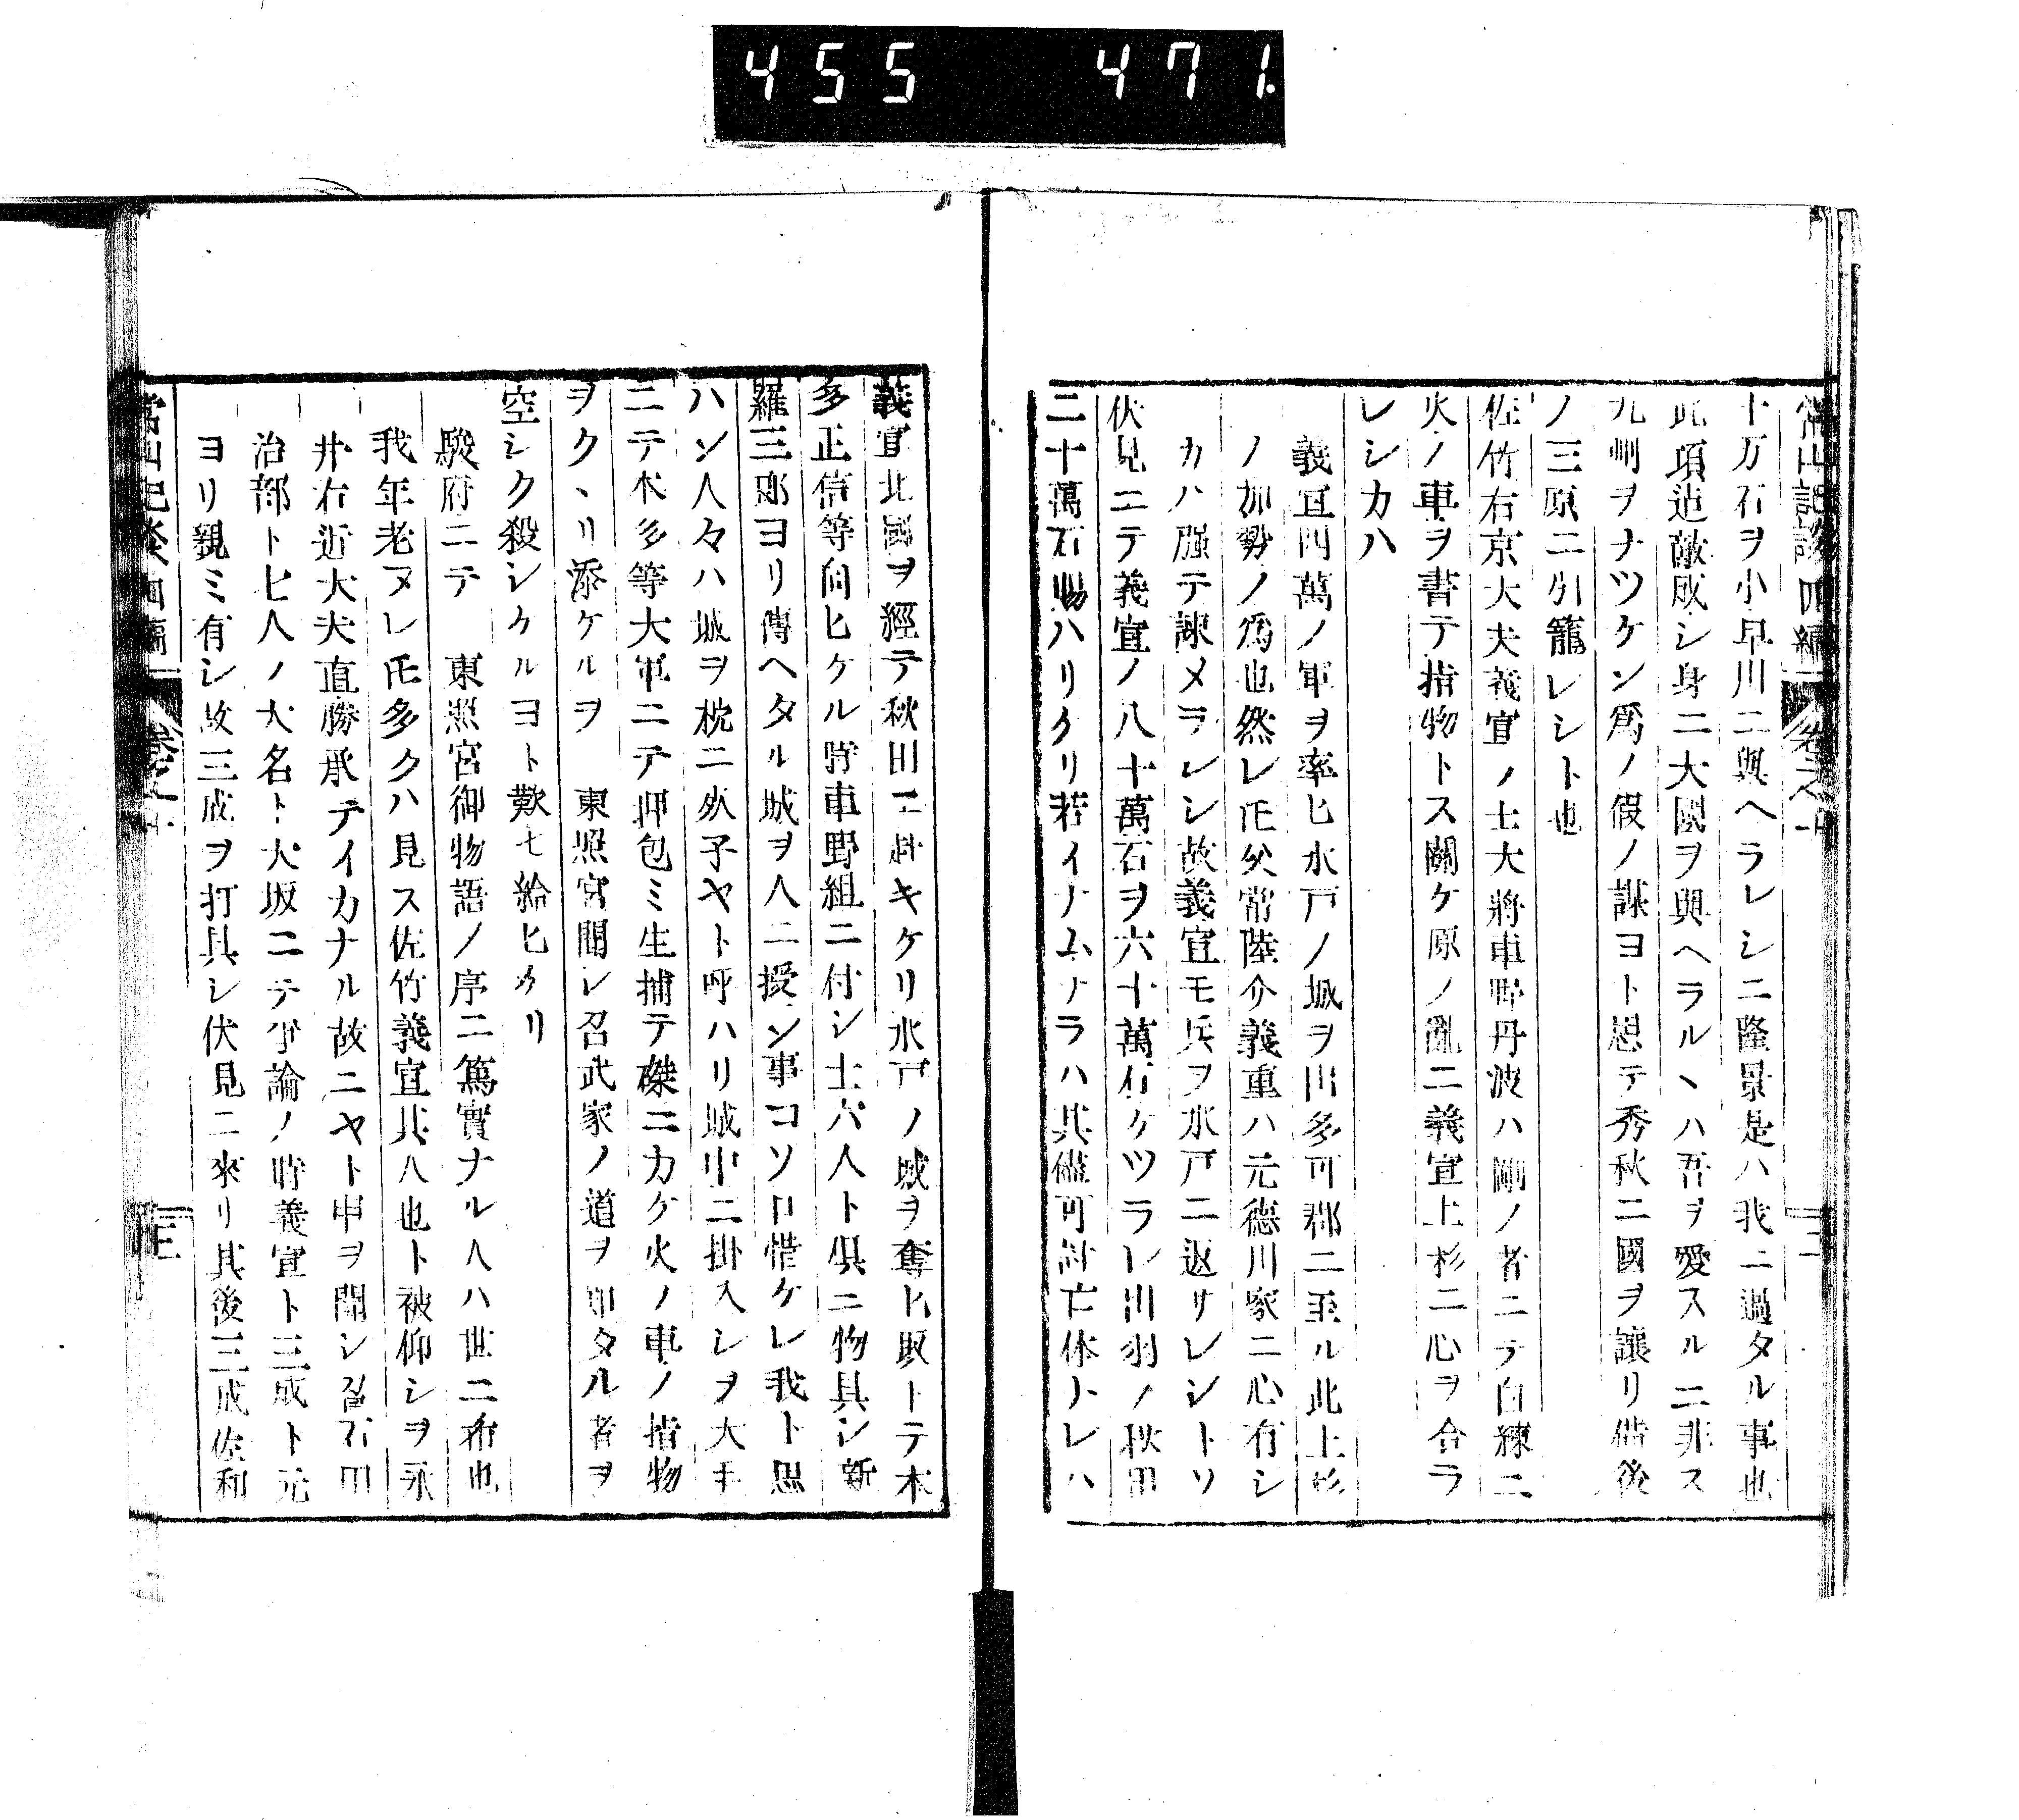 455 471.
常山記談四編 巻之十
十万石ヲ小早川ニ與ヘラレシニ隆景是ハ我ニ過タル事也
此項迠敵成シ身ニ大國ヲ與ヘラルヽハ吾ヲ愛スルニ非ス
九州ヲナツケン爲ノ假ノ謀ヨト思テ秀秋ニ國ヲ讓リ備後
ノ三原ニ引籠レシト也
佐竹右京大夫義宣ノ士大將車野丹波ハ剛ノ者ニテ白練ニ
火ノ車ヲ書テ指物トス關ケ原ノ亂ニ義宣上杉ニ心ヲ合ラ
レシカハ
義宣四萬ノ軍ヲ率ヒ水戸ノ城ヲ出多可郡ニ至ル此上杉
ノ加勢ノ爲也然レ𪜈父常陸介義重ハ元德川家ニ心有シ
カハ强テ諌メラレシ故義宣モ兵ヲ水戸ニ返サレシトソ
伏見ニテ義宣ノ八十萬石ヲ六十萬石ケツラレ出羽ノ秋田
二十萬石賜ハリケリ若イナムナラハ其儘可討亡休トレハ
義宣北國ヲ經テ秋田ニ赴キケリ水戸ノ城ヲ奪ヒ取トテ本
多正信等向ヒケル時車野組ニ付シ士六人ト倶ニ物具シ新
羅三郎ヨリ傳ヘタル城ヲ人ニ授ン事コソ口惜ケレ我ト思
ハン人々ハ城ヲ枕ニ死子ヤト呼ハリ城中ニ掛入シヲ大手
ニテ本多等大軍ニテ押包ミ生捕テ磔ニカケ火ノ車ノ指物
ヲクヽリ添ケルヲ 東照宮聞シ召武家ノ道ヲ知タル者ヲ
空シク殺シケルヨト歎セ給ヒケリ
駿府ニテ 東照宮御物語ノ序ニ篤實ナル人ハ世ニ希也
我年老ヌレ𪜈多クハ見ス佐竹義宣其人也ト被仰シヲ永
井右近大夫直勝承テイカナル故ニヤト申ヲ聞シ召石田
治部ト七人ノ大名ト大坂ニテ爭論ノ時義宣ト三成ト元
ヨリ親ミ有シ故三成ヲ打具シ伏見ニ來リ其後三成佐和
常山紀談四編 巻之十